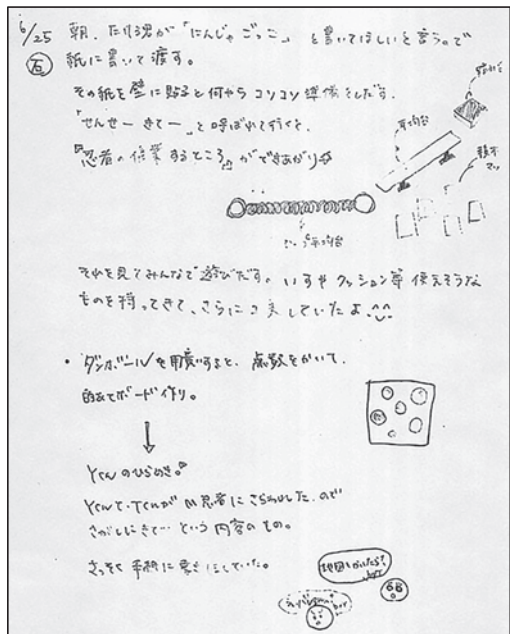 6/25 朝、たり魂が「にんじゃごっこ」と書いてほしいと言うので
石 紙に書いて渡す。
その紙を壁に貼ると何やらコソコソ準備をしだす。
「せんせーきてー」と呼ばれて行くと、
『忍者の修業するところ』ができあがり
平均台
平均台
それを見てみんなで遊びだす。いすやクッション等使えそうな
ものを持ってきて、さらに工夫していたよ
・ダンボールを用意すると、点数をかいて、
的あてボード作り。
↓
Yくんのひらめき。
YくんでTくんがM忍者にさらわれた。ので
さがしにきて…という内容のもの。
さっそく手紙に書きだしていた。
地図もかいたら?